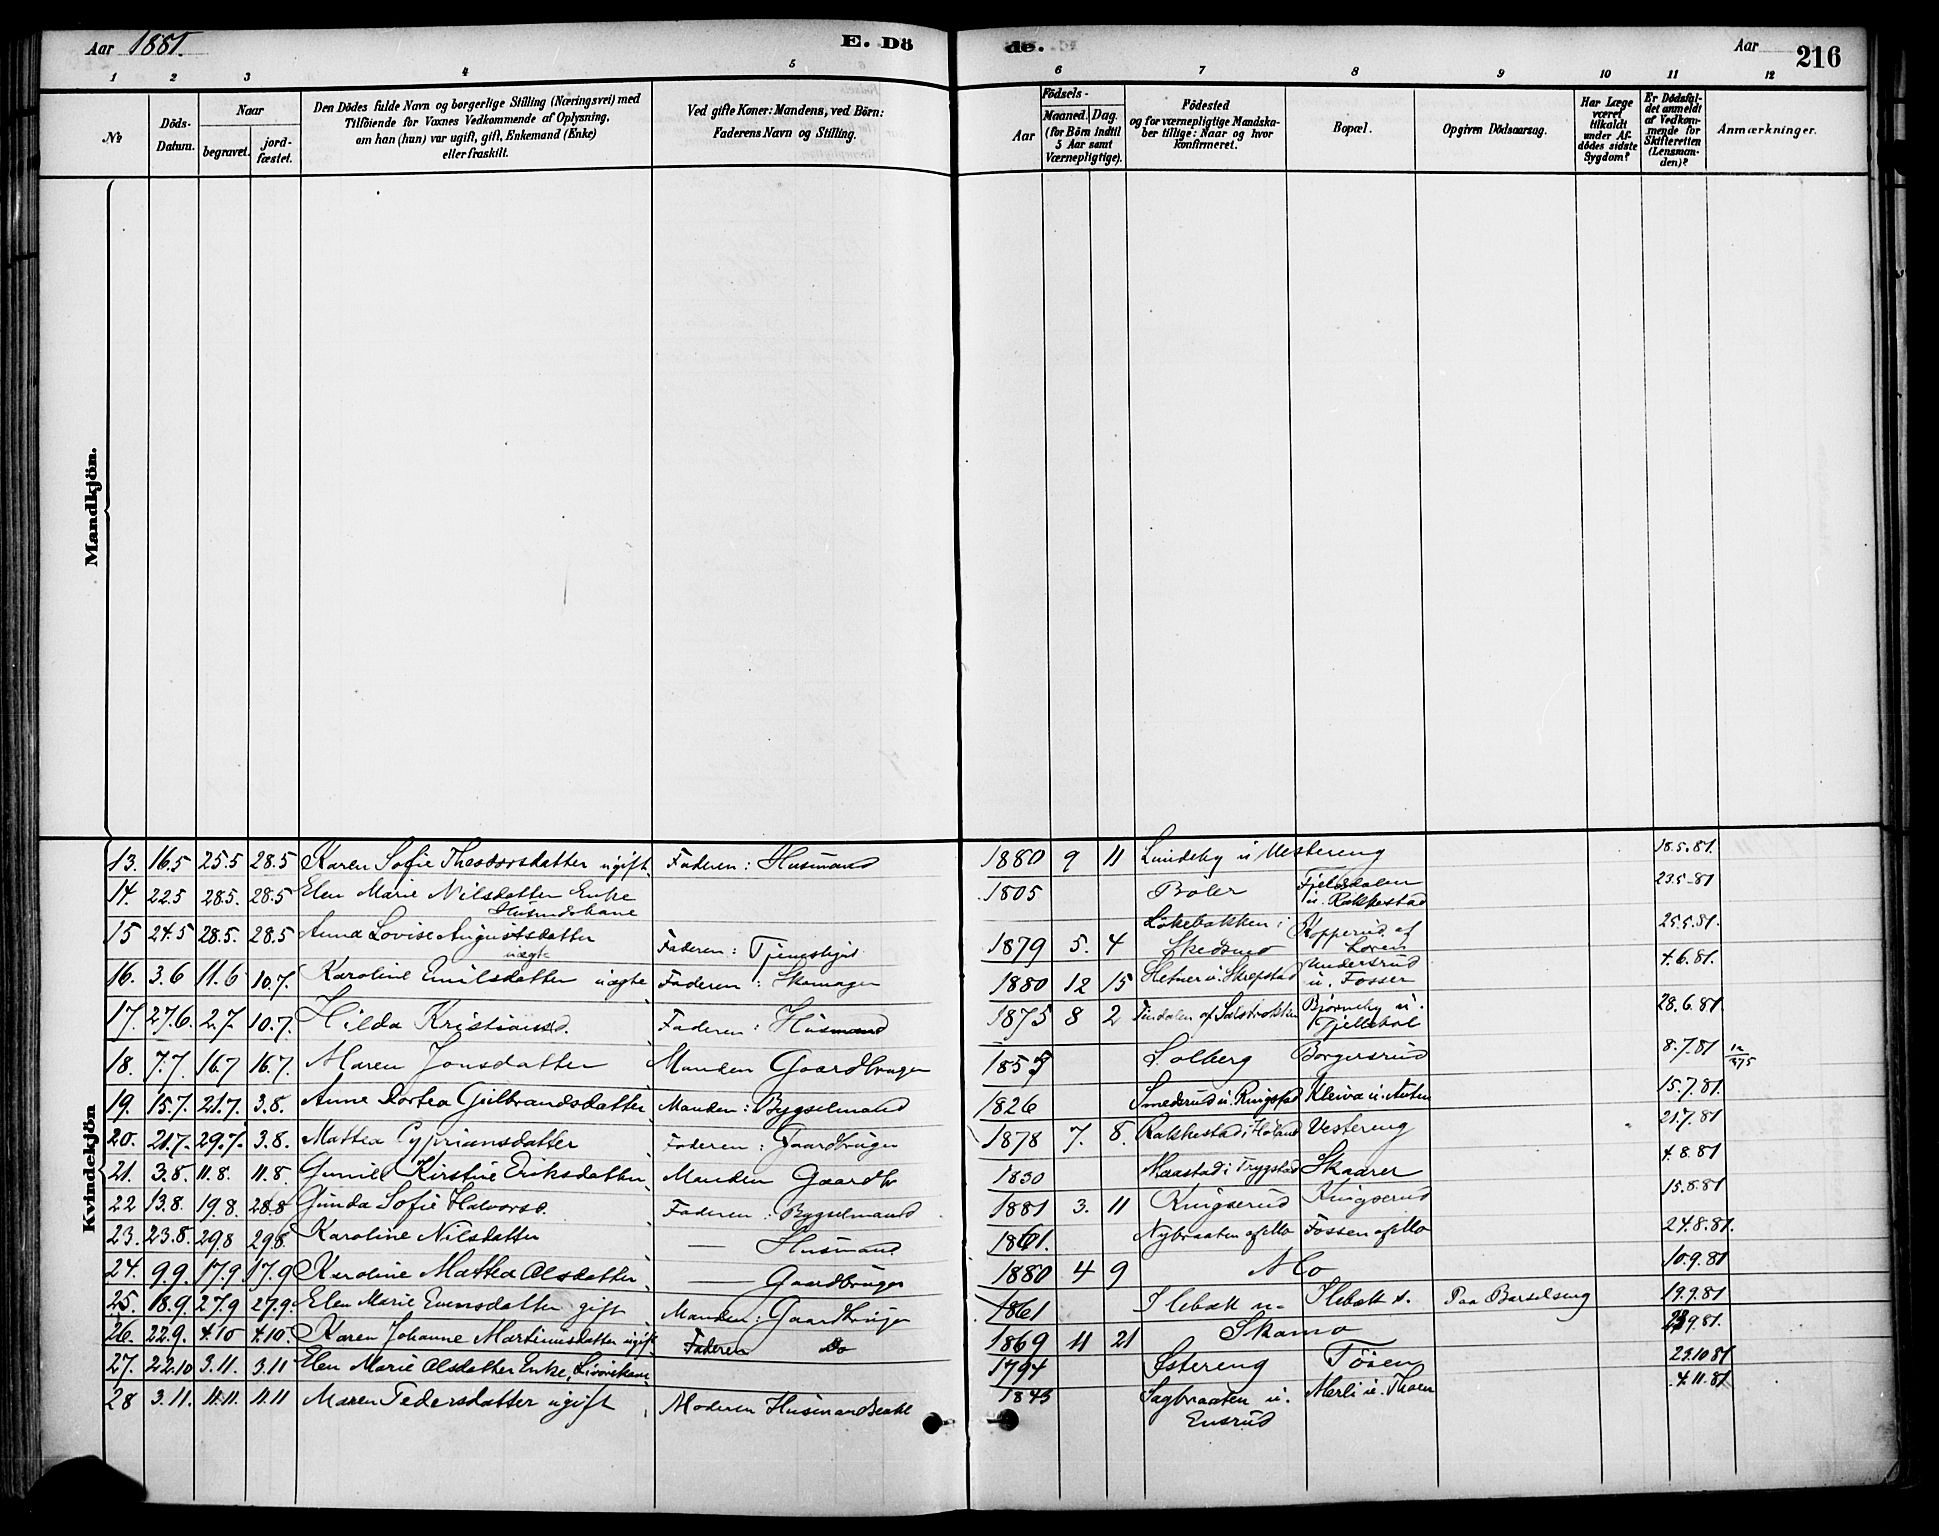 Aar 1881. E. Dö de. Aar 216
1 2 3 4 5 6 7 8 9 10 11 12
No
Döds-Datum.
Naar
begravet.
jord-fæstet.
Den Dödes fulde Navn og borgerlige Stilling (Næringsvei) med
Tilföiende for Voxnes Vedkommende af Oplysning,
om han (hun) var ugift, gift, Enkemand (Enke)
eller fraskilt.
Ved gifte Koner: Mandens, ved Börn:
Faderens Navn og Stilling.
Födsels-
Aar
Maaned. Dag.
(for Börn indtil
5 Aar samt
Værnepligtige).
Födested
og for værnepligtige Mandska-
ber tillige: Naar og hvor
konfirmeret.
Bopæl.
Opgiven Dödsaarsag.
Har Læge
været
tilkaldt
under Af-
dödes sidste
Sygdom?
Er Dödsfal-
det anmeldt
af Vedkom-
mende for
Skifteretten
(Lensman-
den)?
Anmærkninger.
Mandkjön.
Kvindekjön
13. 16.5 25.5 28.5 Karen Sofie Theodorsdatter ugift Faderen: Husmand 1880 9 11 Lundeby u Vestereng 18.5.81.
14. 22.5 28.5. 28.5 Elen Marie Nilsdatter Enke 1805 Böler Fjeldsdalen u. Rakkestad 23.5-81
Husmdskone
15 24.5 28.5. 28.5 Anna Lovise Augustsdatter uægte Faderen: Tjenestgut 1879 5. 4 Lökebakken i Skedsmo Kopperud af Loven 25.5.81.
16. 3.6 11.6 10.7. Karoline Emilsdatter uægte Faderen: Skomager 1880 12 15 Hetner u. Skrepstad Undersrud u. Fosser 4.6.81.
17. 27.6. 2.7. 10.7. Hilda Kristiansd. Faderen: Husmand 1875 8 2 Bjørneby u. 28.6.81.
18. 7.7. 16.7 16.7. Maren Jonsdatter Manden Gaardbruger 1855 Solberg Borgersrud 8.7.81
19. 15.7. 21.7. 3.8. Anne Dortea Gulbrandsdatter Manden: Bygselmand 1826 Smedsrud u. Ringstad Kleiva u. Auten 15.7.81.
20. 21.7. 29.7. 3.8. Mattea Cypriansdatter Faderen: Gaardbruger 1878 7. 8. Rakkestad i Höland Vestereng 21.7.81
21. 3.8. 11.8. 11.8. Gunild Kirstine Eriksdatter Manden Gaardb 1830 Naastad i Trygstad Skaarer 4.8.81
22 13.8. 19.8. 28.8 Gunda Sofie Halvorsd. Faderen: Bygselmand 1881 3. 11 Ringserud Ringserud 15.8.81
23. 23.8. 29.8 29.8. Karoline Nilsdatter — Husmand 1861. Nybraaten af Mo Fossen af Mo 24.8.81.
24. 9.9. 17.9 17.9 Karoline Mattea Olsdatter — Gaardbruger 1880 4 9 Mo 10.9.81
25. 18.9 27.9 27.9. Elen Marie Evensdatter gift Manden: Gaardbruger 1861 Ilebæk n. Ilebæk s. Paa Barselseng 19.9.81
26. 22.9. 4.10 4.10. Karen Johanne Martinusdatter ugift Faderen Do 1869 11 21 Skamo 23.9.81.
27. 22.10 3.11. 3.11 Elen Marie Olsdatter Enke, 1794 Østereng Tösen 23.10.81
28 3.11. 11.11. 11.11 Maren Pedersdatter ugift Moderen Husmandsenke 1843 Sagbraaten u. Ensrud Merli u. Thoen 4.11.81